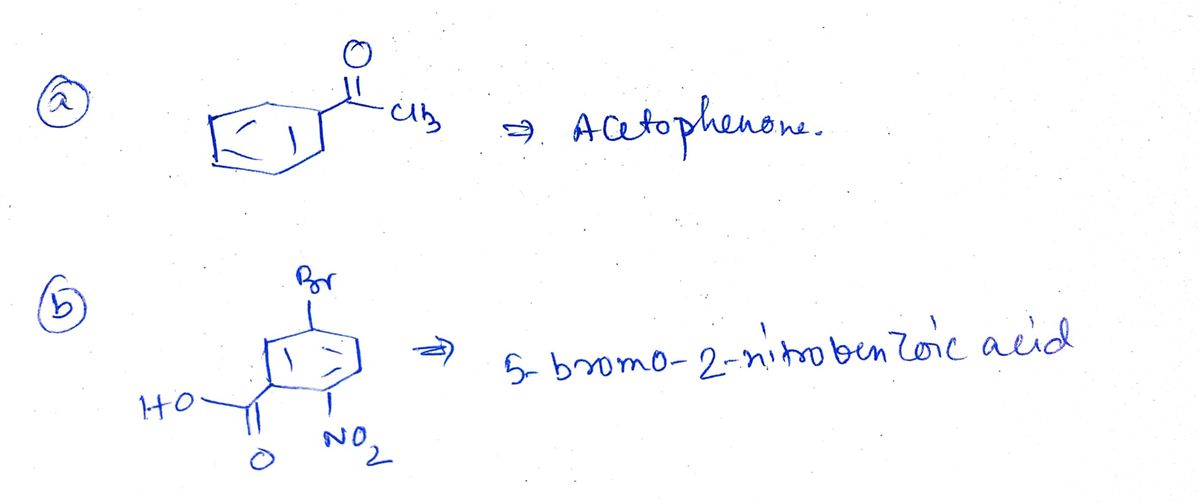 a
O
CH3
⇒ Acetophenone.
b
Br
⇒ 5-bromo-2-nitrobenzoic acid
HO
O
NO2